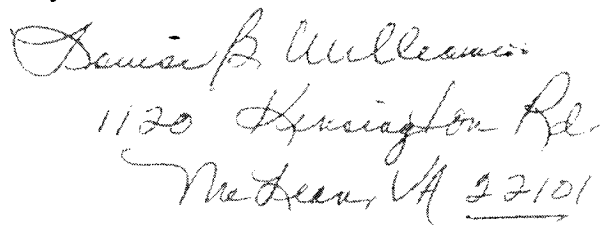 Louise B Williams
1120 Kensington Rd.
McLean, VA 22101